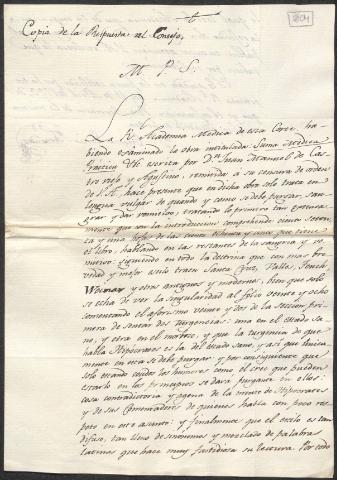 204
Copia de la Respuesta al Consejo,
M. P. S.
La Rl. Academia Medica de esta Corte, ha-
biendo examinado la obra intitulada Suma Medica
practica &c. escrita por Dn. Juan Manuel de Cas-
tro rejo y Aposteino, remitida a su censura de orden
de V.A. hace presente que en dicha obra solo trata en
lengua vulgar de quando y como se debe purgar, san-
grar y dar vomitivo; tratando lo primero tan enteramente
que con la introduccion comprehende ciento seten-
ta y una hojas de las ciento ochenta y una que tiene
el libro, hablando en las restantes de la sangria y vo-
mitivo: siguiendo en todo la doctrina que con mas bre-
vedad y mejor estilo traen Santa Cruz, Valles, Fouch,
y otros antiguos y modernos, bien que solo
se echa de ver la singularidad al folio veinte y ocho
comentando el aforismo veinte y dos de la Seccion pri-
mera de sentar dos turgencias: una en el estado sa-
no, y otra en el morboso, y que la turgencia de que
habla Hipocrates es la del estado sano, y asi que unica-
mente en esta se debe purgar: y por consiguiente que
solo estando cocidos los humores como el cree que pueden
estarlo en los principios se dara purgante en ellos:
cosa contradictoria y agena de la mente de Hipocrates
y de sus Comentadores de quienes habla con poco res-
peto en este asunto: y finalmente que el estilo es tan
difuso, tan lleno de sinonimos y mezclado de palabras
latinas que hace muy fastidiosa su lectura. Por todo